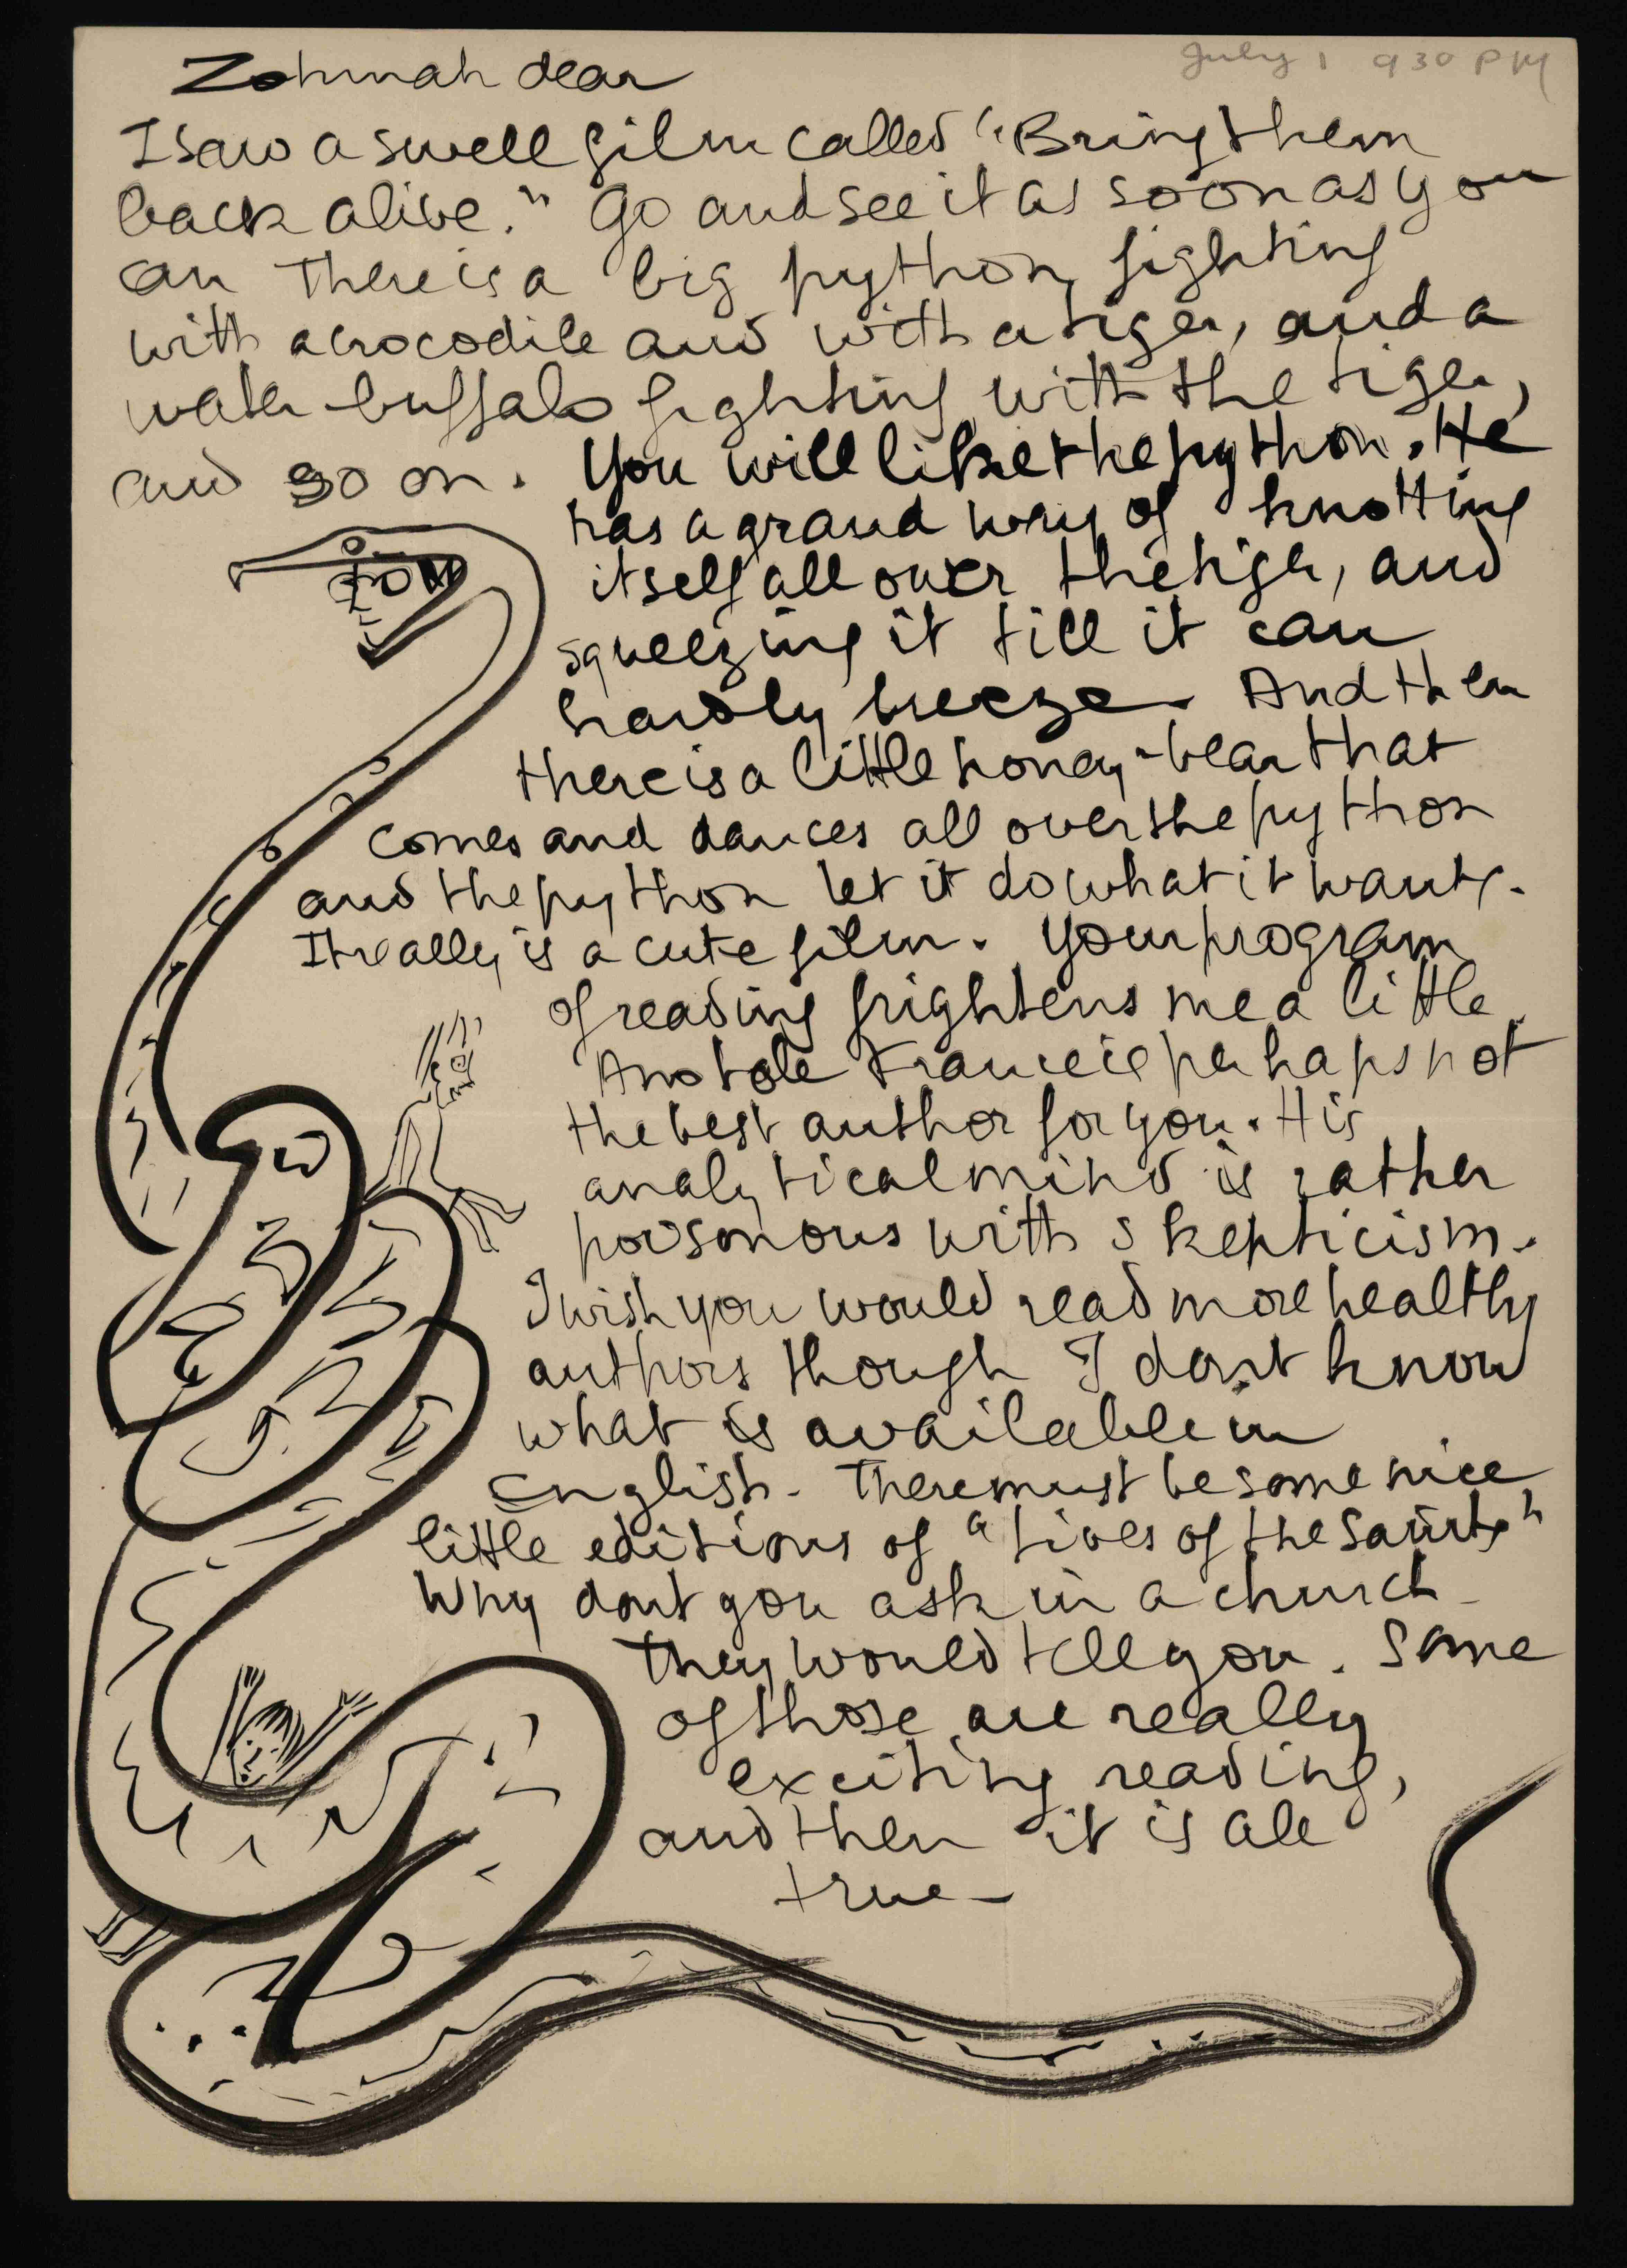 July 1 930 PM
Zohmah dear
I saw a swell film called "Bring them
back alive." Go and see it as soon as you
can There is a big python fighting
with a crocodile and with a tiger, and a
water-buffalo fighting with the tiger,
and so on. You will like the python. He
has a grand way of knotting
itself all over the tiger, and
squeezing it till it can
hardly breeze. And then
there is a little honey-bear that
comes and dances all over the python
and the python let it do what it wants.
It really is a cute film. Your program
of reading frightens me a little.
Anatole France is perhaps not
the best author for you. His
analytical mind is rather
poisonous with skepticism.
I wish you would read more healthy
authors though I dont know
what is available in
English. There must be some nice
little editions of "lives of the Saints"
Why dont you ask in a church
they would tell you. Some
of those are really
exciting reading,
and then it is all
true-